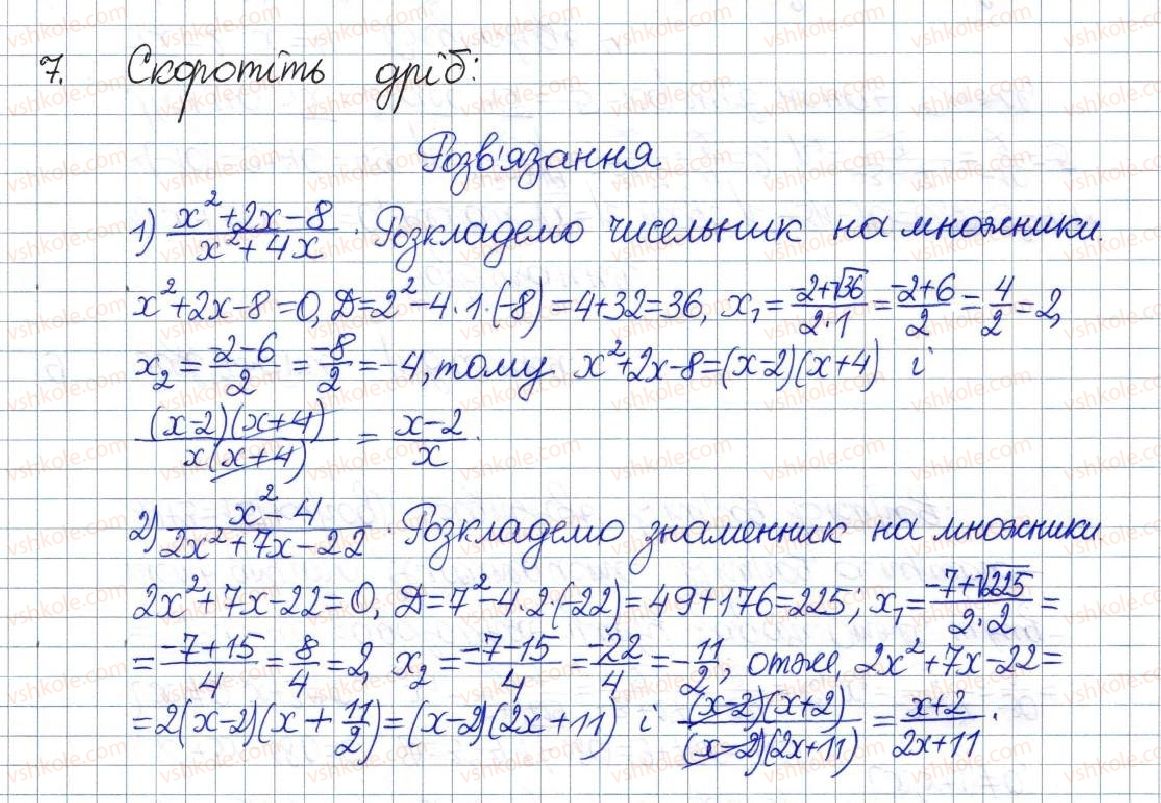 7. Скоротіть дріб:
Розв'язання
1) (x²+2x-8)/(x²+4x). Розкладемо чисельник на множники.
x²+2x-8=0, Д=2²-4·1·(-8)=4+32=36, x₁=(-2+√36)/(2·1)=(-2+6)/2=4/2=2,
x₂=(-2-6)/2=(-8)/2=-4, тому x²+2x-8=(x-2)(x+4) і
((x-2)(x+4))/(x(x+4))=(x-2)/x.
2) (x²-4)/(2x²+7x-22). Розкладемо знаменник на множники.
2x²+7x-22=0, Д=7²-4·2·(-22)=49+176=225; x₁=(-7+√225)/(2·2)=
=(-7+15)/4=8/4=2, x₂=(-7-15)/4=(-22)/4=-11/2; отже, 2x²+7x-22=
=2(x-2)(x+11/2)=(x-2)(2x+11) і ((x-2)(x+2))/((x-2)(2x+11))=(x+2)/(2x+11).
vshkole.com